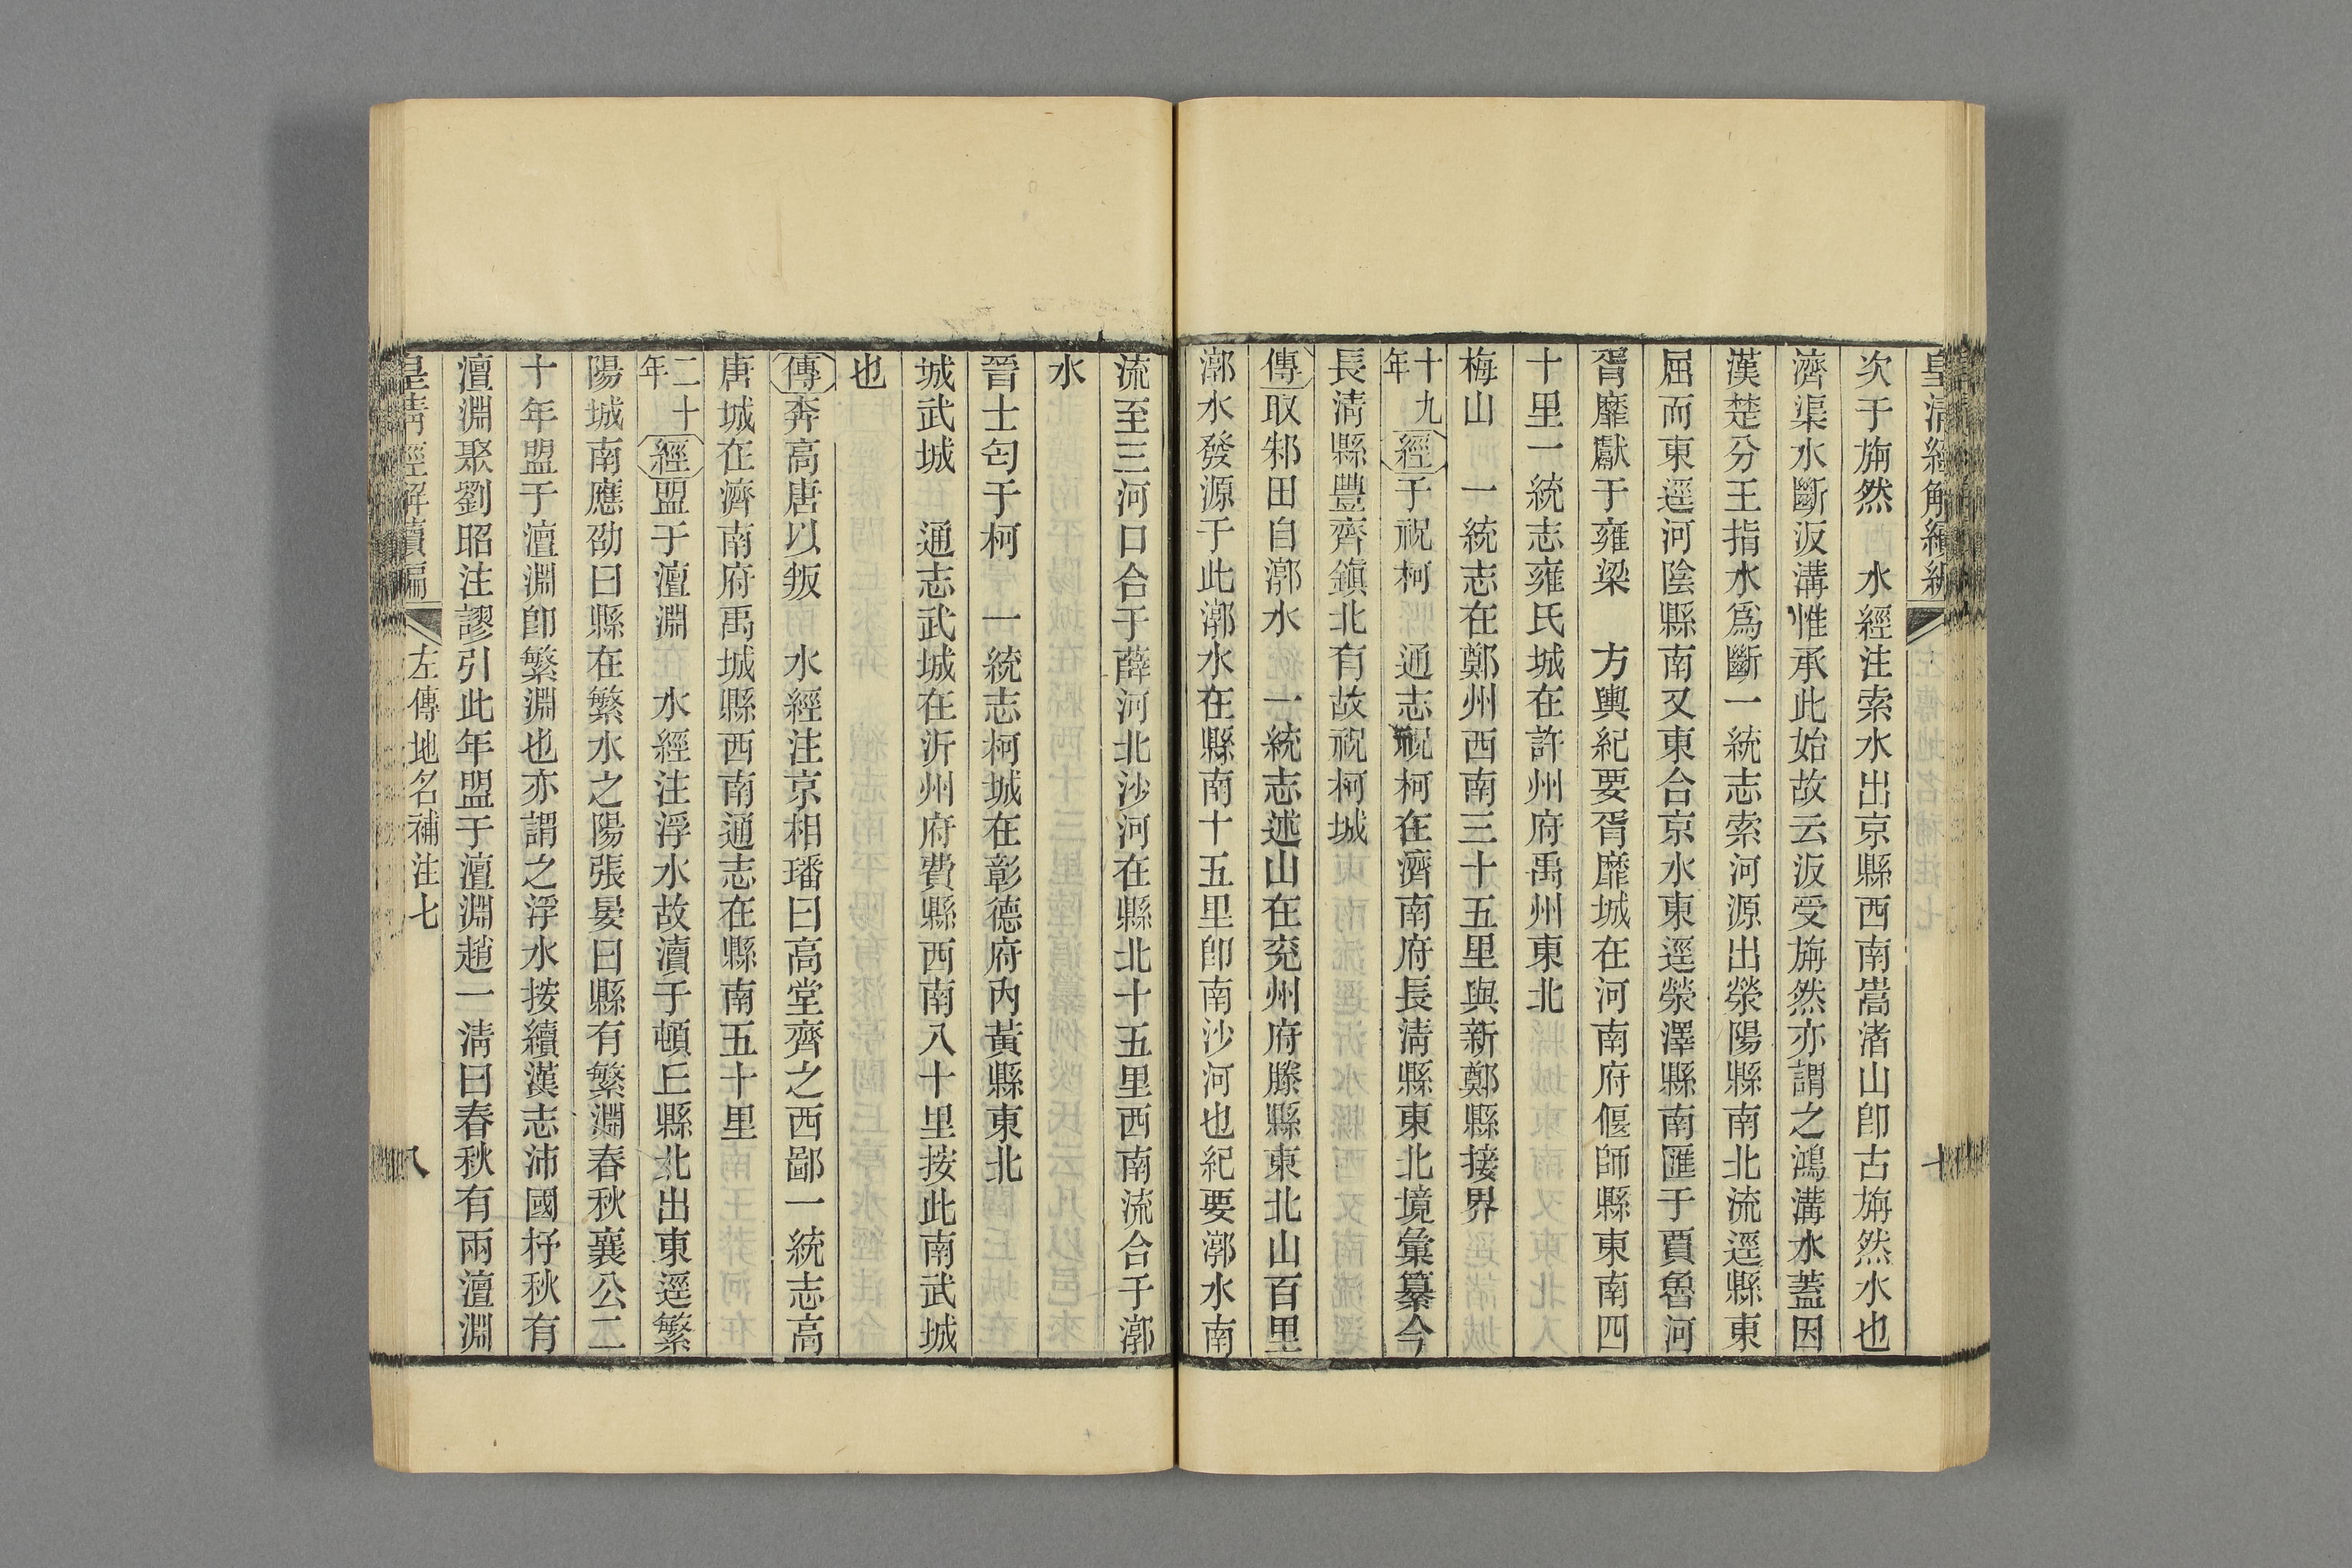 皇清經解續編
次于旃然　水經注索水出京縣西南嵩渚山卽古旃然水也
濟渠水斷汳溝惟承此始故云汳受旃然亦謂之鴻溝水蓋因
漢楚分王指水爲斷一統志索河源出滎陽縣南北流逕縣東
屈而東逕河陰縣南又東合京水東逕滎澤縣南匯于賈魯河
胥靡獻于雍梁　方輿紀要胥靡城在河南府偃師縣東南四
十里一統志雍氏城在許州府禹州東北
梅山　一統志在鄭州西南三十五里與新鄭縣接界
十九年經于祝柯　通志祝柯在濟南府長淸縣東北境彙纂今
長淸縣豐齊鎭北有故祝柯城
傳取邾田自漷水　一統志述山在兗州府滕縣東北山百里
漷水發源于此漷水在縣南十五里卽南沙河也紀要漷水南
流至三河口合于薛河北沙河在縣北十五里西南流合于漷
水
晉士匄于柯　一統志柯城在彰德府內黃縣東北
城武城　通志武城在沂州府費縣西南八十里按此南武城
也
傳奔高唐以叛　水經注京相璠曰高堂齊之西鄙一統志高
唐城在濟南府禹城縣西南通志在縣南五十里
二十年經盟于澶淵　水經注浮水故瀆于頓丘縣北出東逕繁
陽城南應劭曰縣在繁水之陽張晏曰縣有繁淵春秋襄公二
十年盟于澶淵卽繁淵也亦謂之浮水按續漢志沛國杼秋有
澶淵聚劉昭注謬引此年盟于澶淵趙一淸曰春秋有兩澶淵
皇淸經解續編　左傳地名補注七　八